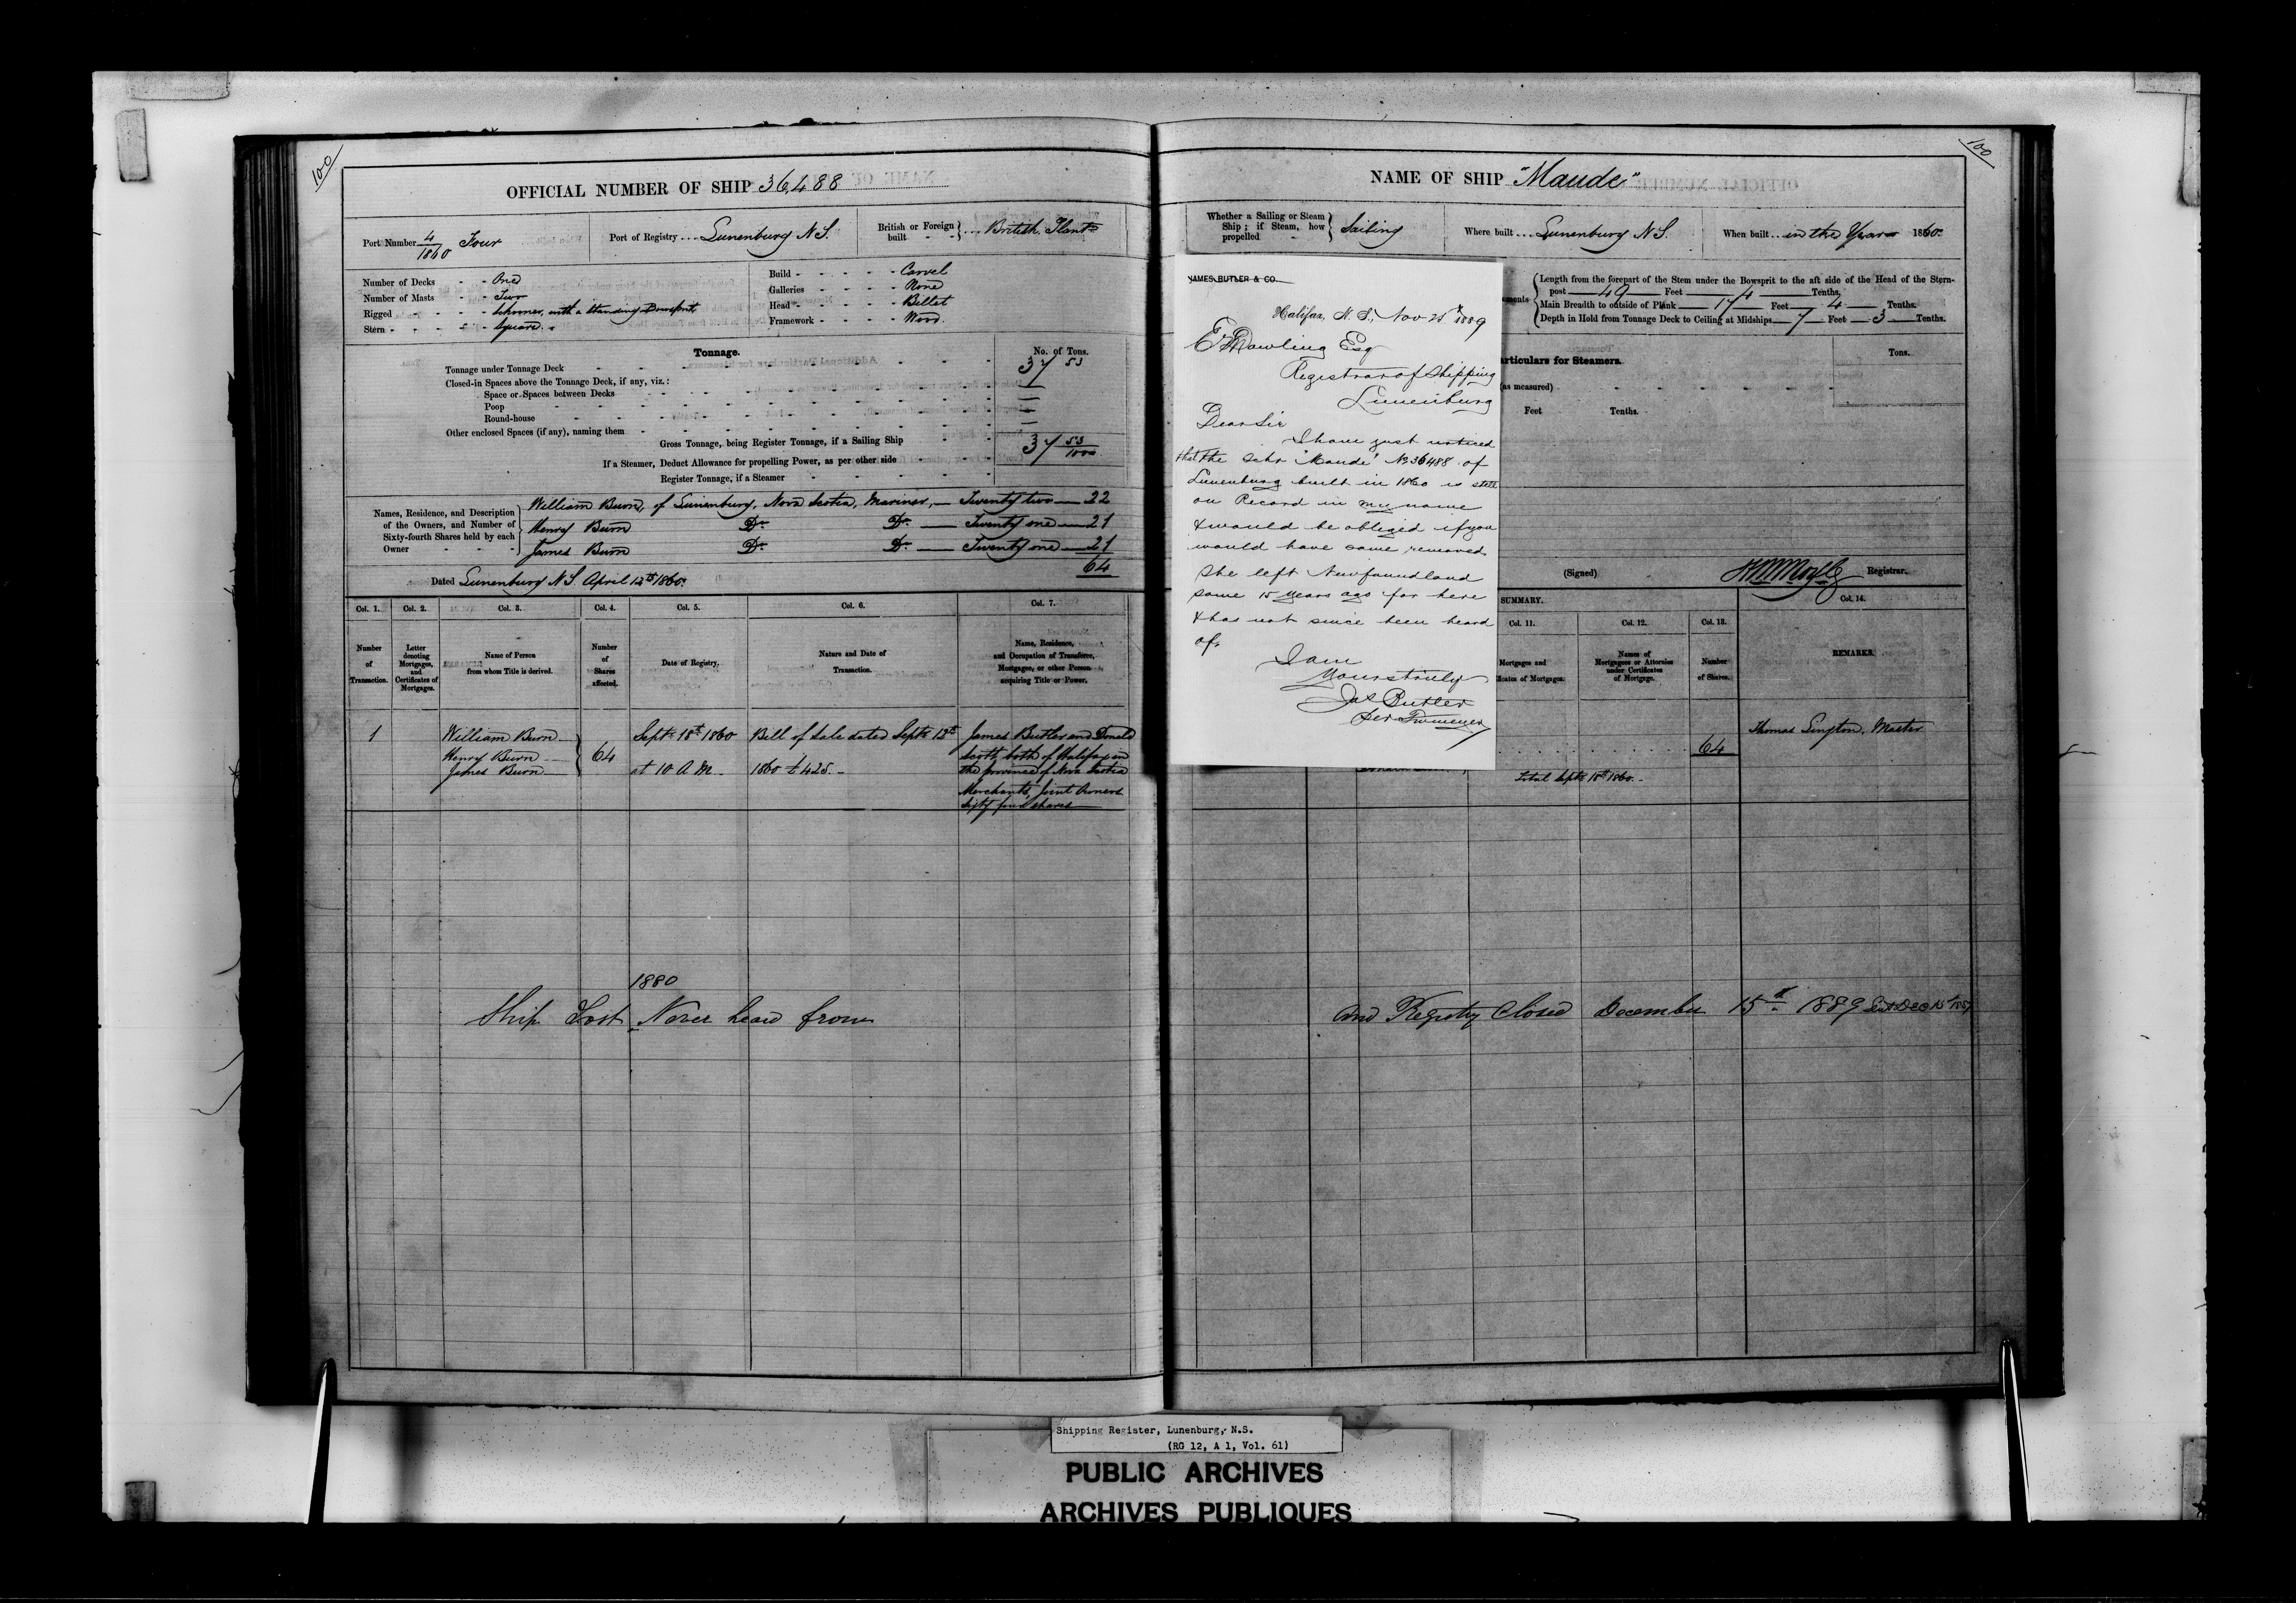 100
OFFICIAL NUMBER OF SHIP 36,488
Port Number 4/1860 Four
Port of Registry Lunenburg N.S.
British or Foreign built - - British Plant
Number of Decks - - One
Number of Masts - - Two
Rigged - - Schooner, with a Standing Bowsprit
Stern - - - Square
Build - - - - - Carvel
Galleries - - - - - None
Head - - - - - Billet
Framework - - - - Wood
Tonnage.
No. of Tons.
Tonnage under Tonnage Deck 37 53
Closed-in Spaces above the Tonnage Deck, if any, viz.:
Space or Spaces between Decks
Poop
Round-house
Other enclosed Spaces (if any), naming them
Gross Tonnage, being Register Tonnage, if a Sailing Ship 37 53/100
If a Steamer, Deduct Allowance for propelling Power, as per other side
Register Tonnage, if a Steamer
Names, Residence, and Description of the Owners, and Number of Sixty-fourth Shares held by each Owner
William Burn, of Lunenburg, Nova Scotia, Mariner, — Twenty two — 22
Henry Burn Do. Do. — Twenty one — 21
James Burn Do. Do. — Twenty one — 21
64
Dated Lunenburg N.S. April 12th 1860.
Col. 1. Col. 2. Col. 3. Col. 4. Col. 5. Col. 6. Col. 7.
Number of Transaction.
Letter denoting Mortgages, and Certificates of Mortgages.
Name of Person from whom Title is derived.
Number of Shares affected.
Date of Registry.
Nature and Date of Transaction.
Name, Residence, and Occupation of Transferee, Mortgagee, or other Person acquiring Title or Power.
1
William Burn
Henry Burn
James Burn
64
Septr 18th 1860
at 10 A.M.
Bill of Sale dated Septr 12th
1860 £425.
James Butler and Donald
Scott, both of Halifax in
the province of Nova Scotia
Merchants, Joint Owners
Sixty four shares
1880
Ship Lost, Never heard from
100
NAME OF SHIP "Maude"
Whether a Sailing or Steam Ship; if Steam, how propelled - Sailing
Where built Lunenburg N.S.
When built in the Year 1860.
Length from the forepart of the Stem under the Bowsprit to the aft side of the Head of the Stern-
post 49 Feet 4 Tenths.
Main Breadth to outside of Plank 17 Feet 4 Tenths.
Depth in Hold from Tonnage Deck to Ceiling at Midships 7 Feet 3 Tenths.
articulars for Steamers.
Tons.
(as measured)
Feet Tenths.
(Signed) Registrar.
JAMES BUTLER & CO.
Halifax, N.S., Nov 25th 1889
E. Dowling Esq
Registrar of Shipping
Lunenburg
Dear Sir
I have just noticed
that the Schr 'Maude' No 36488 of
Lunenburg built in 1860 is still
on Record in my name
& would be obliged if you
would have same removed
She left Newfoundland
some 15 years ago for here
& has not since been heard
of.
I am
Yours truly
Jas Butler
per
SUMMARY.
Col. 11. Col. 12. Col. 13. Col. 14.
Mortgages and
icates of Mortgages.
Names of Mortgagees or Attornies under Certificates of Mortgage.
Number of Shares.
REMARKS.
64
Total Septr 18th 1860.
Thomas Lington, Master
and Registry Closed December 15th 1889
Shipping Register, Lunenburg, N.S.
(RG 12, A 1, Vol. 61)
PUBLIC ARCHIVES
ARCHIVES PUBLIQUES